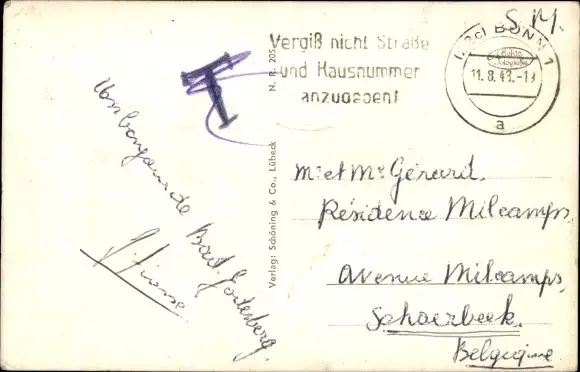 S.M.
Vergiß nicht Straße
und Hausnummer
anzugeben!
BONN 1
11.8.49.-1
a
T
N. R. 205
Verlag: Schöning & Co., Lübeck
Bad-Godesberg.
M et Me Gérard.
Résidence Milcamps
Avenue Milcamps,
Schaerbeek.
Belgique